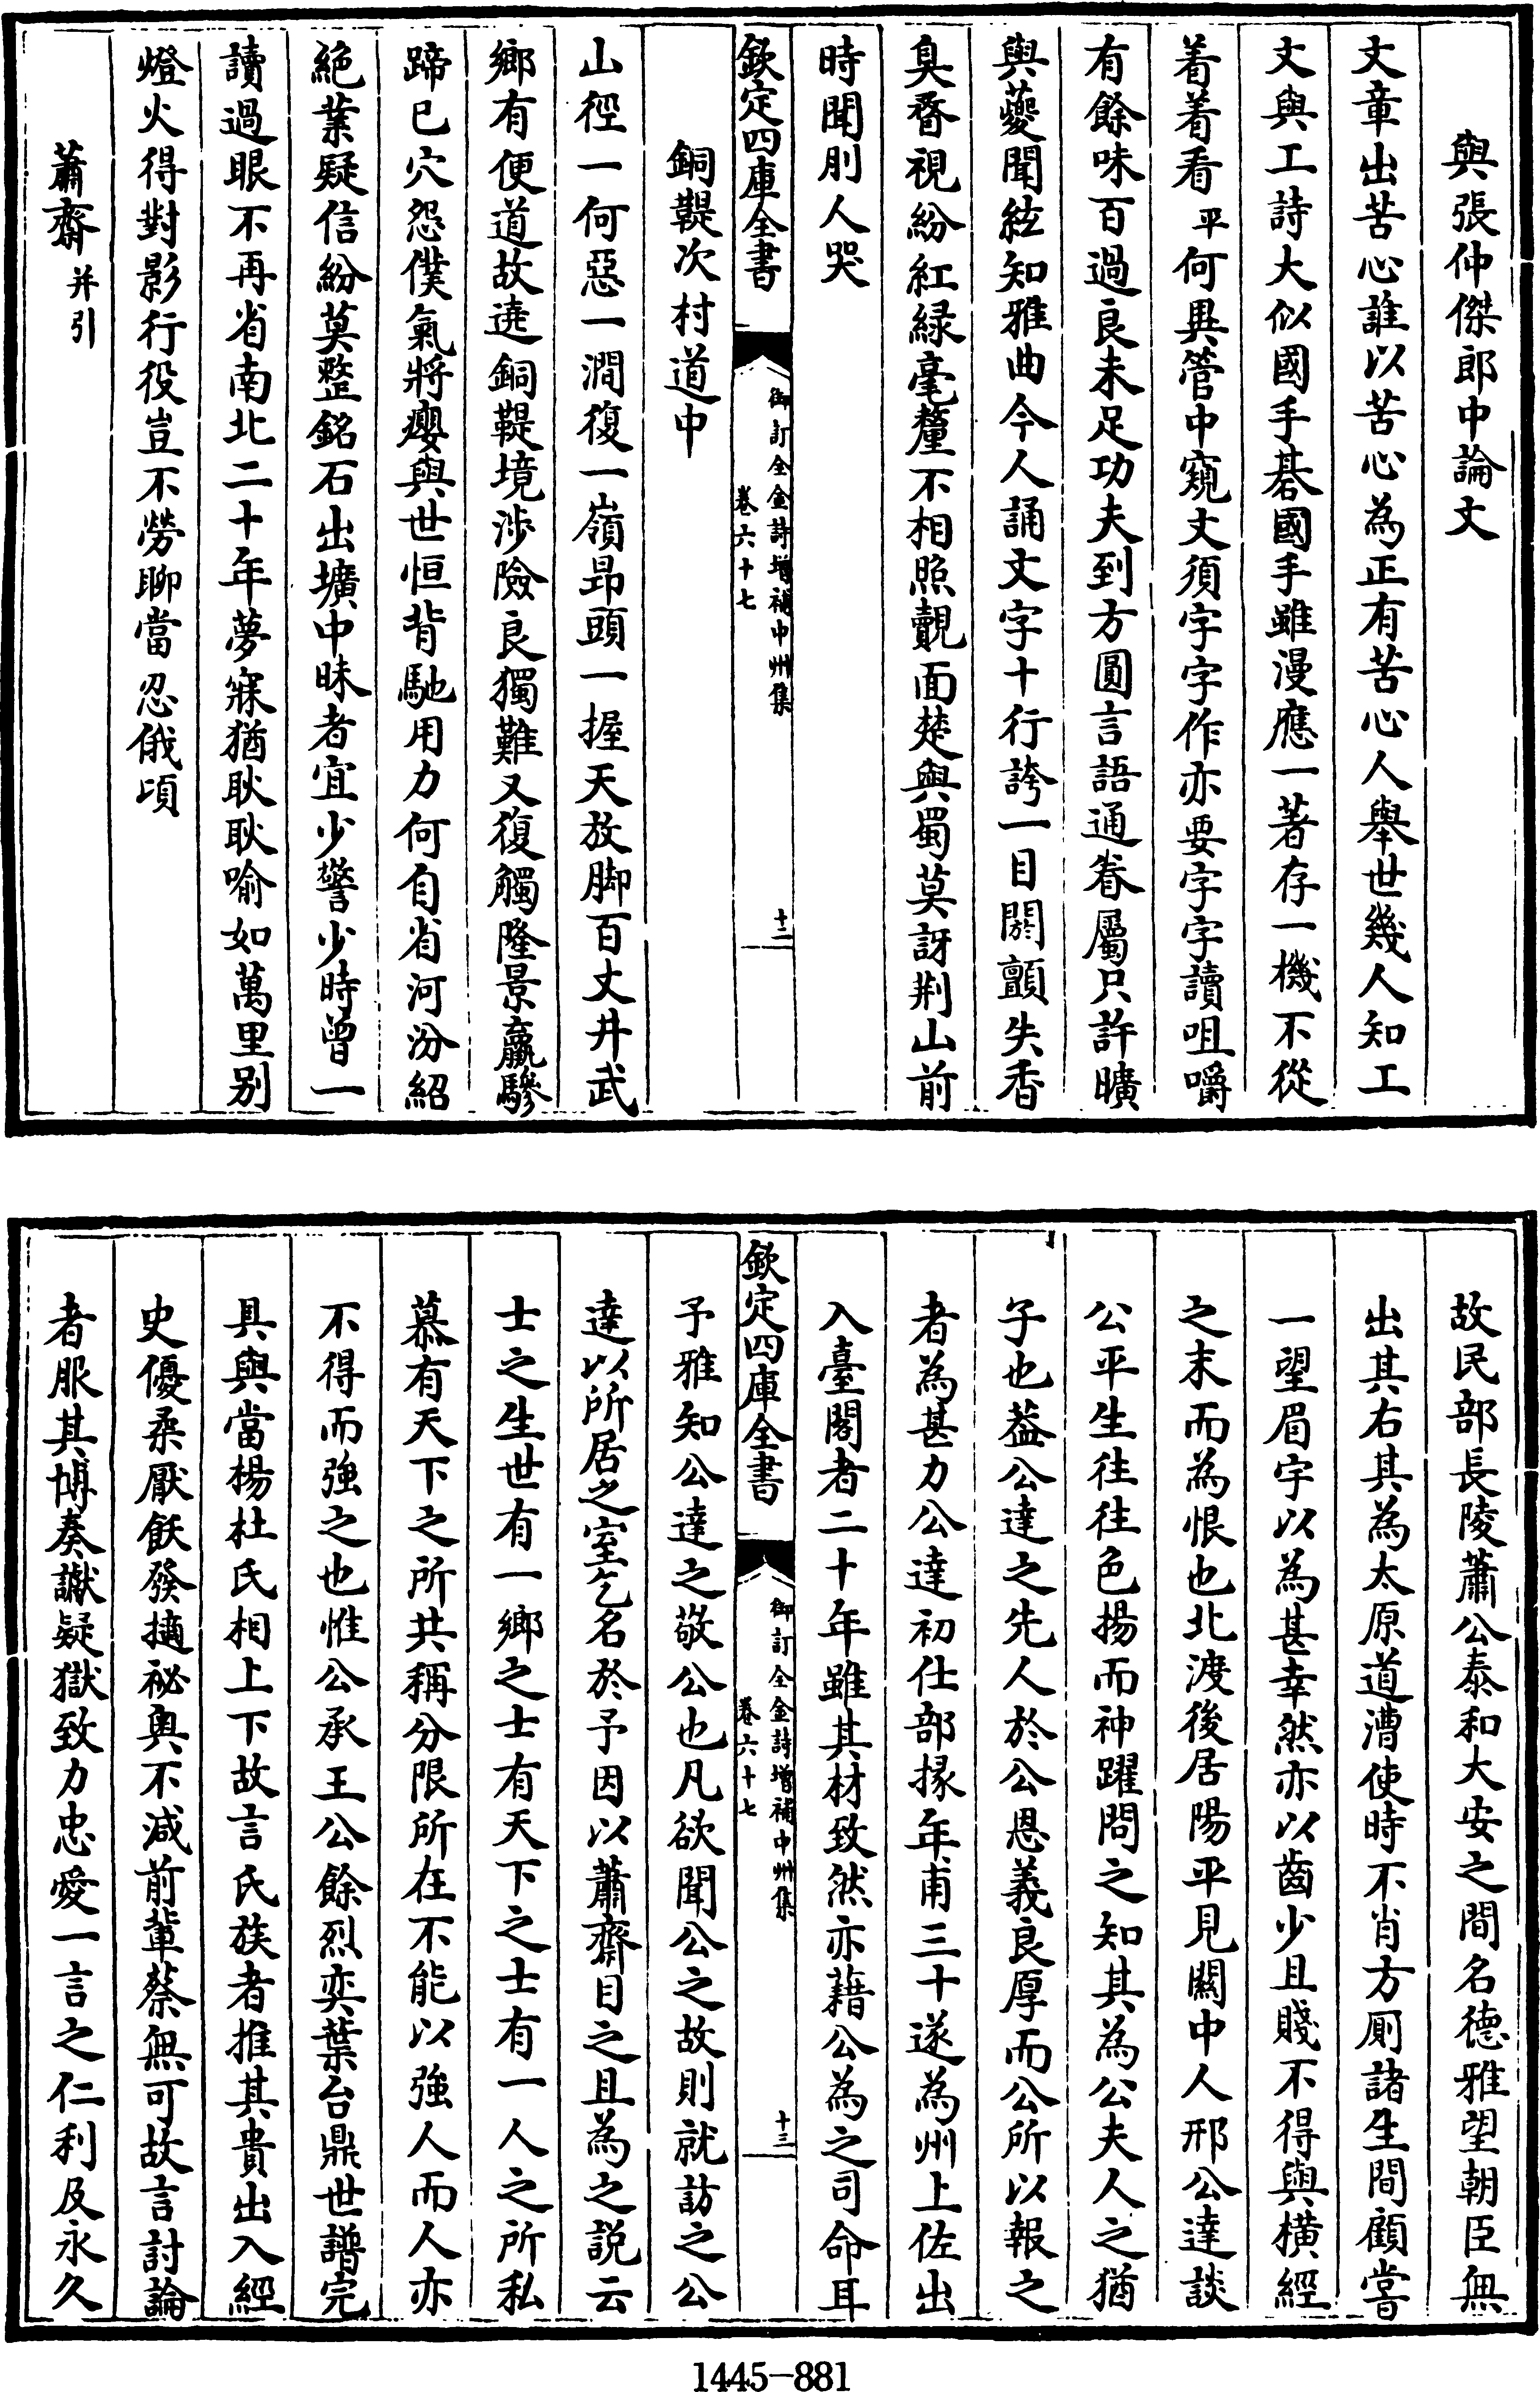 與張仲傑郎中論文
文章出苦心誰以苦心為正有苦心人舉世幾人知工
文與工詩大似國手碁國手雖漫應一著存一機不從
着着看平何異管中窺文須字字作亦要字字讀咀嚼
有餘味百過良未足功夫到方圓言語通眷屬只許曠
與夔聞絃知雅曲今人誦文字十行誇一目閼顫失香
臭瞀視紛紅綠毫釐不相照覿面楚與蜀莫訝荆山前
時聞刖人哭
欽定四庫全書
御訂全金詩增補中州集
卷六十七
十二
銅鞮次村道中
山徑一何惡一澗復一嶺昂頭一握天放脚百丈井武
鄉有便道故遶銅鞮境涉險良獨難又復觸隆景羸驂
蹄已穴怨僕氣將癭與世恒背馳用力何自省河汾紹
絕業疑信紛莫整銘石出壙中昧者宜少警少時曾一
讀過眼不再省南北二十年夢寐猶耿耿喻如萬里别
燈火得對影行役豈不勞聊當忍俄頃
蕭齋并引
故民部長陵蕭公泰和大安之間名德雅望朝臣無
出其右其為太原道漕使時不肖方厠諸生間顧嘗
一望眉宇以為甚幸然亦以齒少且賤不得與横經
之末而為恨也北渡後居陽平見關中人邢公達談
公平生往往色揚而神躍問之知其為公夫人之猶
子也葢公達之先人於公恩義良厚而公所以報之
者為甚力公達初仕部掾年甫三十遂為州上佐出
入臺閣者二十年雖其材致然亦藉公為之司命耳
欽定四庫全書
御訂全金詩增補中州集
卷六十七
十三
予雅知公達之敬公也凡欲聞公之故則就訪之公
達以所居之室乞名於予因以蕭齋目之且為之説云
士之生世有一鄉之士有天下之士有一人之所私
慕有天下之所共稱分限所在不能以強人而人亦
不得而強之也惟公承王公餘烈奕葉台鼎世譜完
具與當楊杜氏相上下故言氏族者推其貴出入經
史優柔厭飫發擿祕奥不減前軰蔡無可故言討論
者服其博奏讞疑獄致力忠愛一言之仁利及永久
1445-881